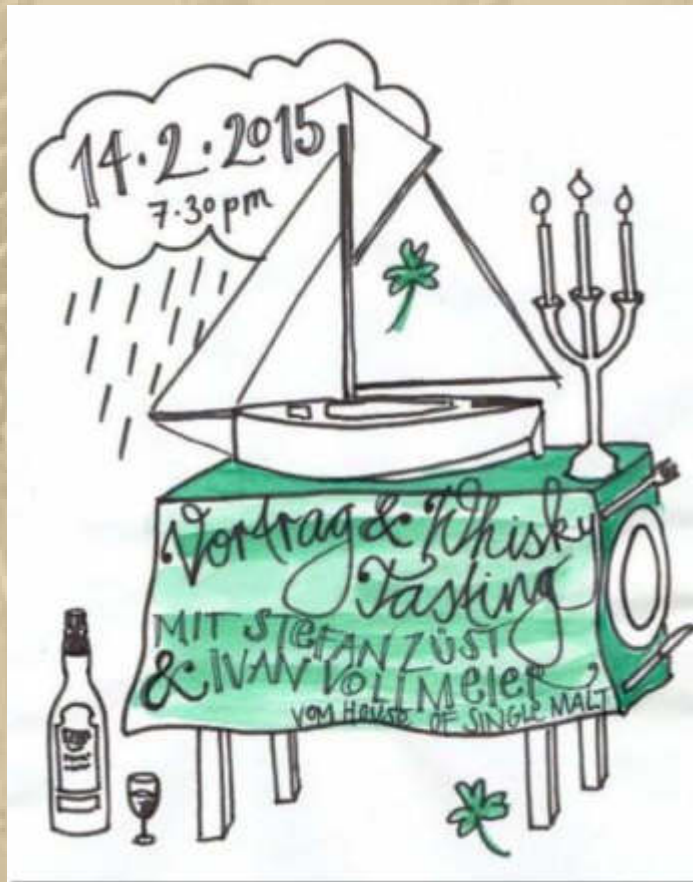 14.2.2015
7.30pm
Vortrag & Whisky
Tasting
MIT STEFAN ZÜST
& IVAN VOLLMEIER
VOM HOUSE OF SINGLE MALT